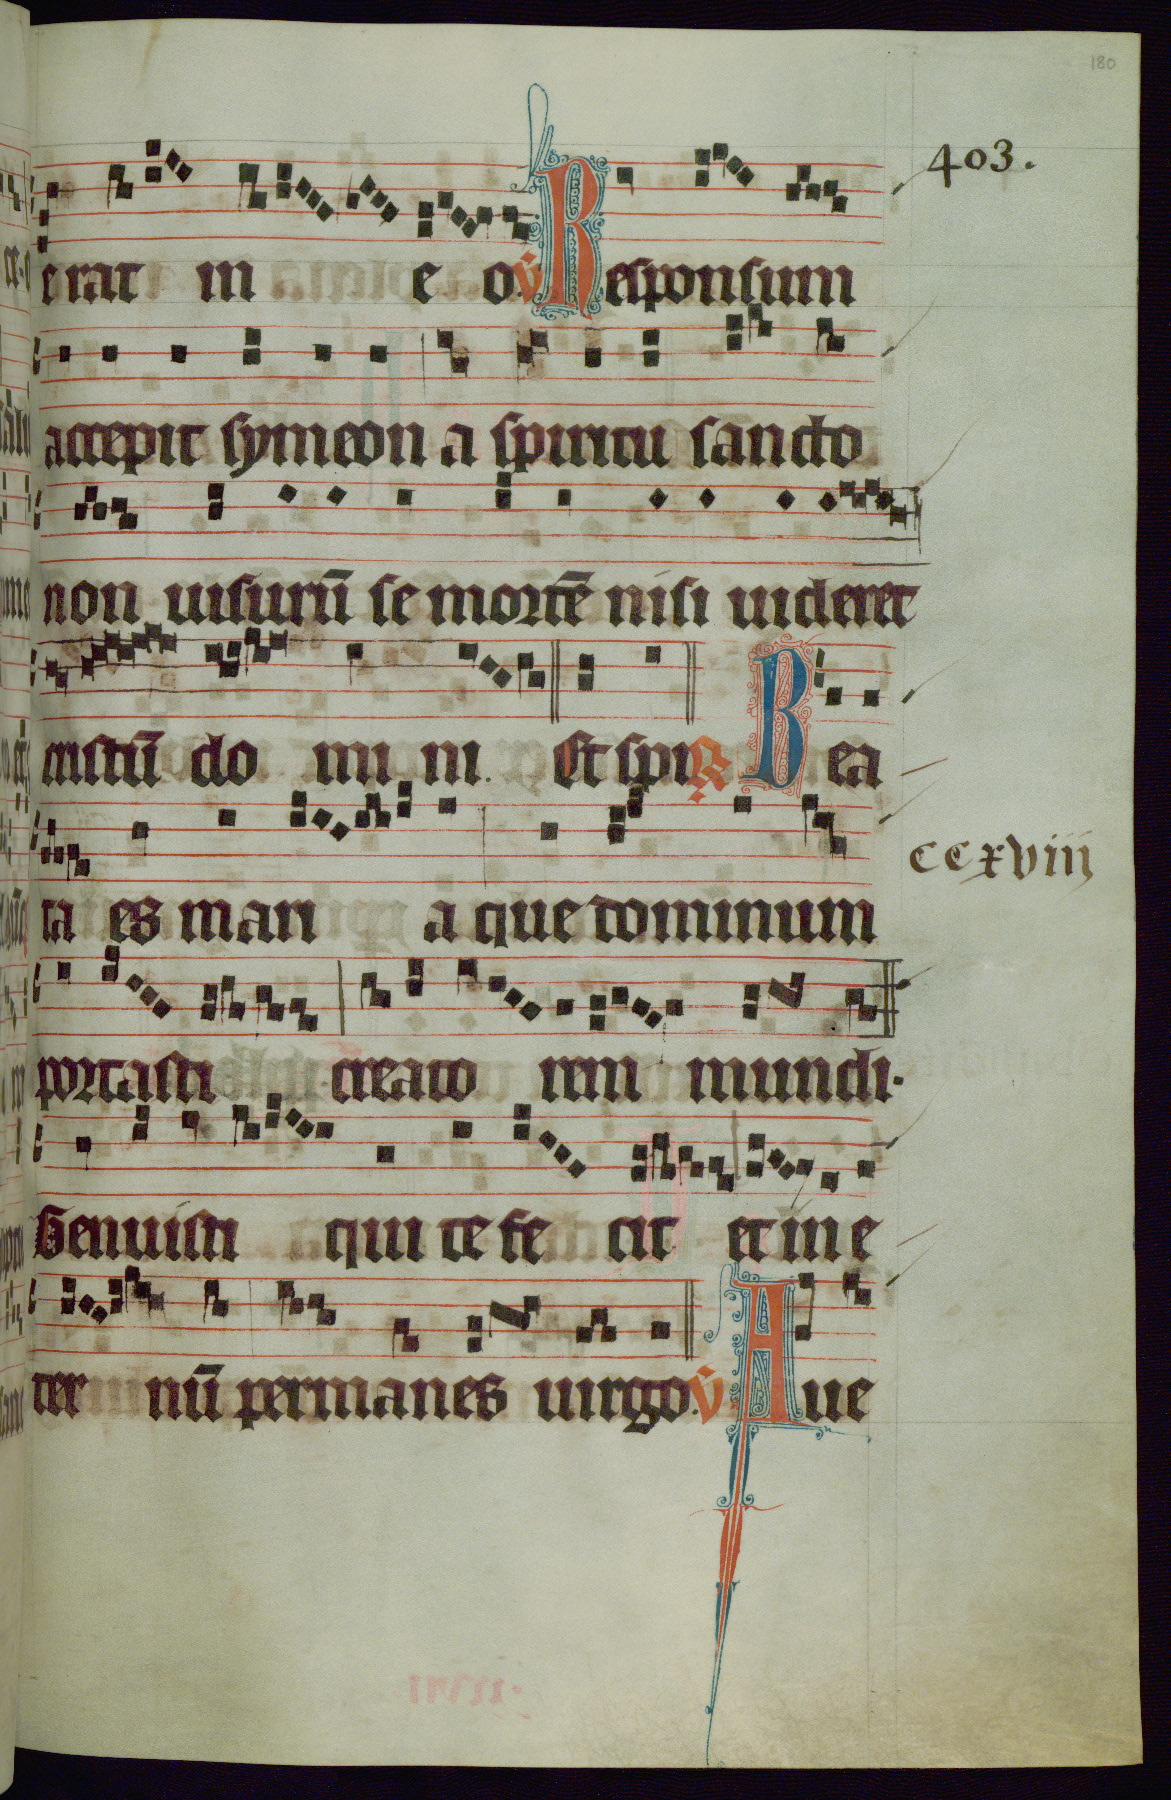 180
403.
erat in e o. V Responsum
accepit symeon a spiritu sancto
non uisurū se mortē nisi uideret
cristū do mi ni. Et spi R Bea
CCXViii
ta es mari a que dominum
portasti creato rem mundi.
Genuisti qui te fe cit et in e
ter nū permanes uirgo. V Aue